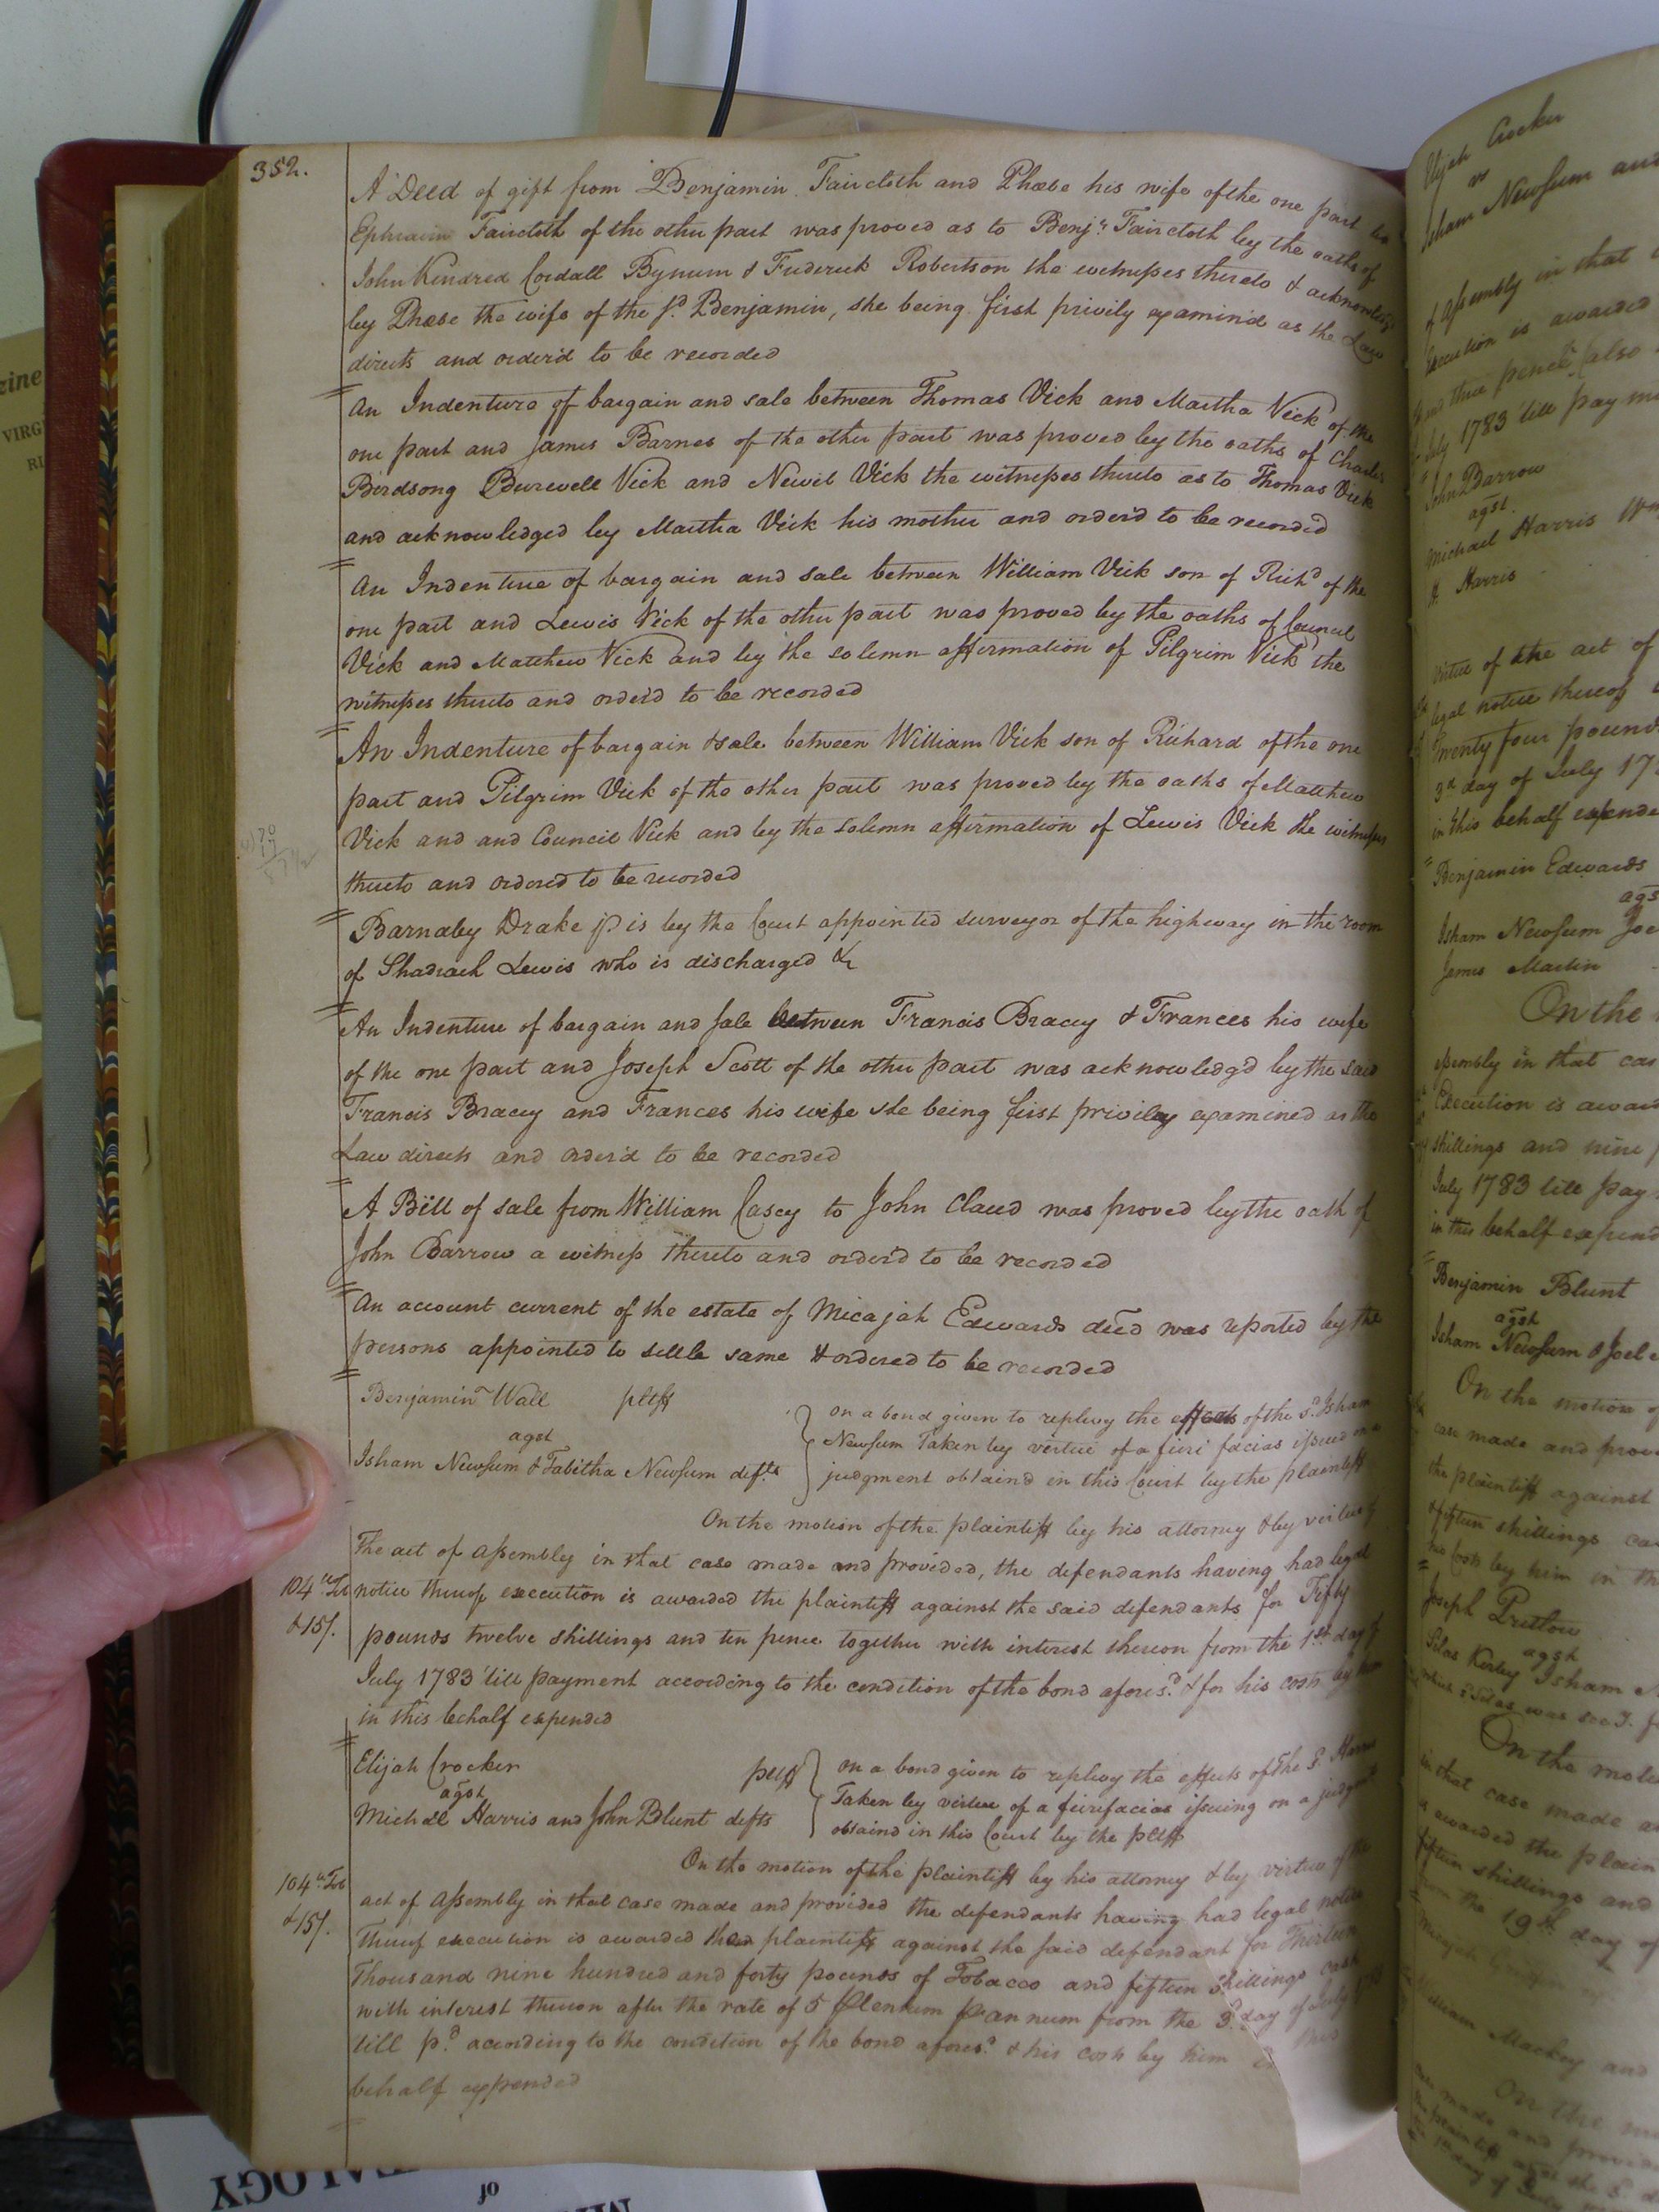 352.
A Deed of gift from Benjamin Faircloth and Phœbe his wife of the one part to
Ephraim Faircloth of the other part was proved as to Benjn Faircloth by the oaths of
John Kindred Cordall Bynum & Frederick Robertson the witnesses thereto & acknowledg'd
by Phœbe the wife of the sd. Benjamin, she being first privily examin'd as the Law
directs and order'd to be recorded
An Indenture of bargain and sale between Thomas Vick and Martha Vick of the
one part and James Barnes of the other part was proved by the oaths of Charles
Birdsong Burwell Vick and Newit Vick the witnesses thereto as to Thomas Vick
and acknowledged by Martha Vick his mother and order'd to be recorded
An Indenture of bargain and sale between William Vick son of Richd of the
one part and Lewis Vick of the other part was proved by the oaths of Council
Vick and Matthew Vick and by the solemn affirmation of Pilgrim Vick the
witnesses thereto and order'd to be recorded
An Indenture of bargain & sale between William Vick son of Richard of the one
part and Pilgrim Vick of the other part was proved by the oaths of Matthew
Vick and and Council Vick and by the solemn affirmation of Lewis Vick the witnesses
thereto and ordered to be recorded
Barnaby Drake jr is by the Court appointed surveyor of the highway in the room
of Shadrach Lewis who is discharged &c
An Indenture of bargain and sale between Francis Bracey & Frances his wife
of the one part and Joseph Scott of the other part was acknowledg'd by the said
Francis Bracey and Frances his wife she being first privily examined as the
Law directs and order'd to be recorded
A Bill of sale from William Casey to John Claud was proved by the oath of
John Barrow a witness thereto and order'd to be recorded
An account current of the estate of Micajah Edwards deed was reported by the
persons appointed to settle same & ordered to be recorded
Benjamin Wall pltff
agst
Isham Newsum & Tabitha Newsum defts
on a bond given to replevy the effects of the sd. Isham
Newsum Taken by vertue of a fieri facias issued on a
judgment obtain'd in this Court by the plaintiff
On the motion of the plaintiff by his attorney & by virtue of
The act of assembly in that case made and provided, the defendants having had legal
104 lb Tob notice thereof execution is awarded the plaintiff against the said defendants for Fifty
&15/. pounds twelve shillings and ten pence together with interest thereon from the 1st day of
July 1783 'till payment according to the condition of the bond afores.d & for his costs by him
in this behalf expended
Elijah Crocker pltff
agst
Michael Harris and John Blunt defts
on a bond given to replevy the effects of the sd. Harris
Taken by virtue of a fierifacias issuing on a judgment
obtaind in this Court by the pltff
On the motion of the plaintiff by his attorney & by virtue of the
104 lb Tob act of assembly in that case made and provided the defendants having had legal notice
&15/. Thereof execution is awarded the plaintiff against the said defendant for Thirteen
Thousand nine hundred and forty pounds of Tobacco and fifteen shillings cash
with interest thereon after the rate of 5 centum p annum from the 3d day of July
till pd. according to the condition of the bond afores.d & his costs by him in this
behalf expended
Elijah Crocker
vs
Isham Newsum and
of assembly in that
Execution is awarded
and three pence (also
July 1783 till payme
John Barrow
agst.
Michael Harris
H Harris
virtue of the act of
legal notice thereof
Twenty four pounds
3d day of July 17
in this behalf expende
Benjamin Edwards
ags
Isham Newsum Joe
James Martin
On the
assembly in that cas
Execution is awar
shillings and nine
July 1783 till pay
in this behalf expend
Benjamin Blunt
agst
Isham Newsum & Joel
On the motion of
case made and prov
the plaintiff against
& fifteen shillings ca
his Costs by him in th
Joseph Pretlow
agst
Silas Kirby Isham
On the moti
in that case made a
awarded the plain
fifteen shillings and
from the 19th day of
William Mackey and
On the
zine
VIRG
RI
of